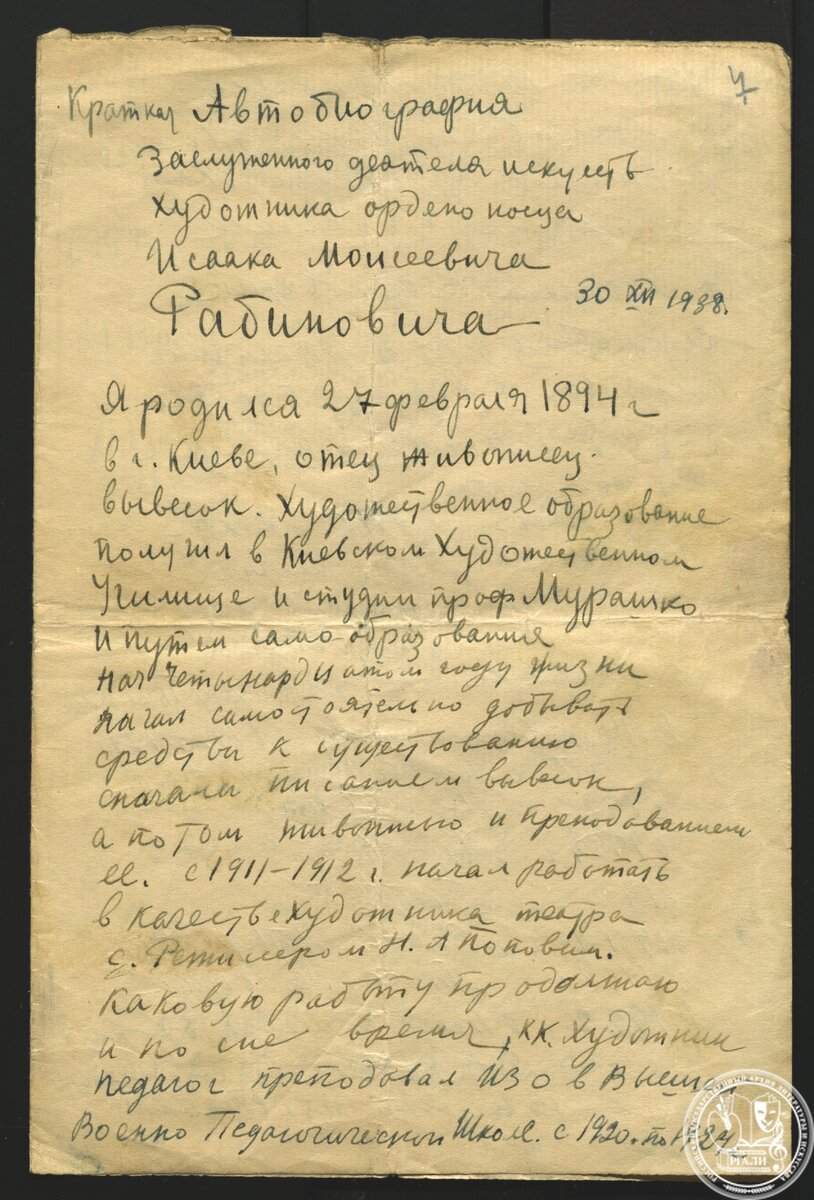 4
Краткая Автобиография
Заслуженного деятеля искуств
художника орденоносца
Исаака Моисеевича
Рабиновича
30 XII 1938.
Я родился 27 февраля 1894 г
в г. Киеве, отец живописец
вывесок. Художественное образование
получил в Киевском Художественном
Училище и студии проф Мурашко
и путем само-образования
на четырнадцатом году жизни
начал самостоятельно добывать
средства к существованию
сначала писанием вывесок,
а потом живописью и преподованием
ее. с 1911-1912 г. начал работать
в качестве художника театра
с. Режиссером Н. А Поповым.
каковую работу продолжаю
и по сие время, кк. художник
педагог преподовал ИЗО в Высшей
Военно Педагогической Школе. с 1920. по
РГАЛИ